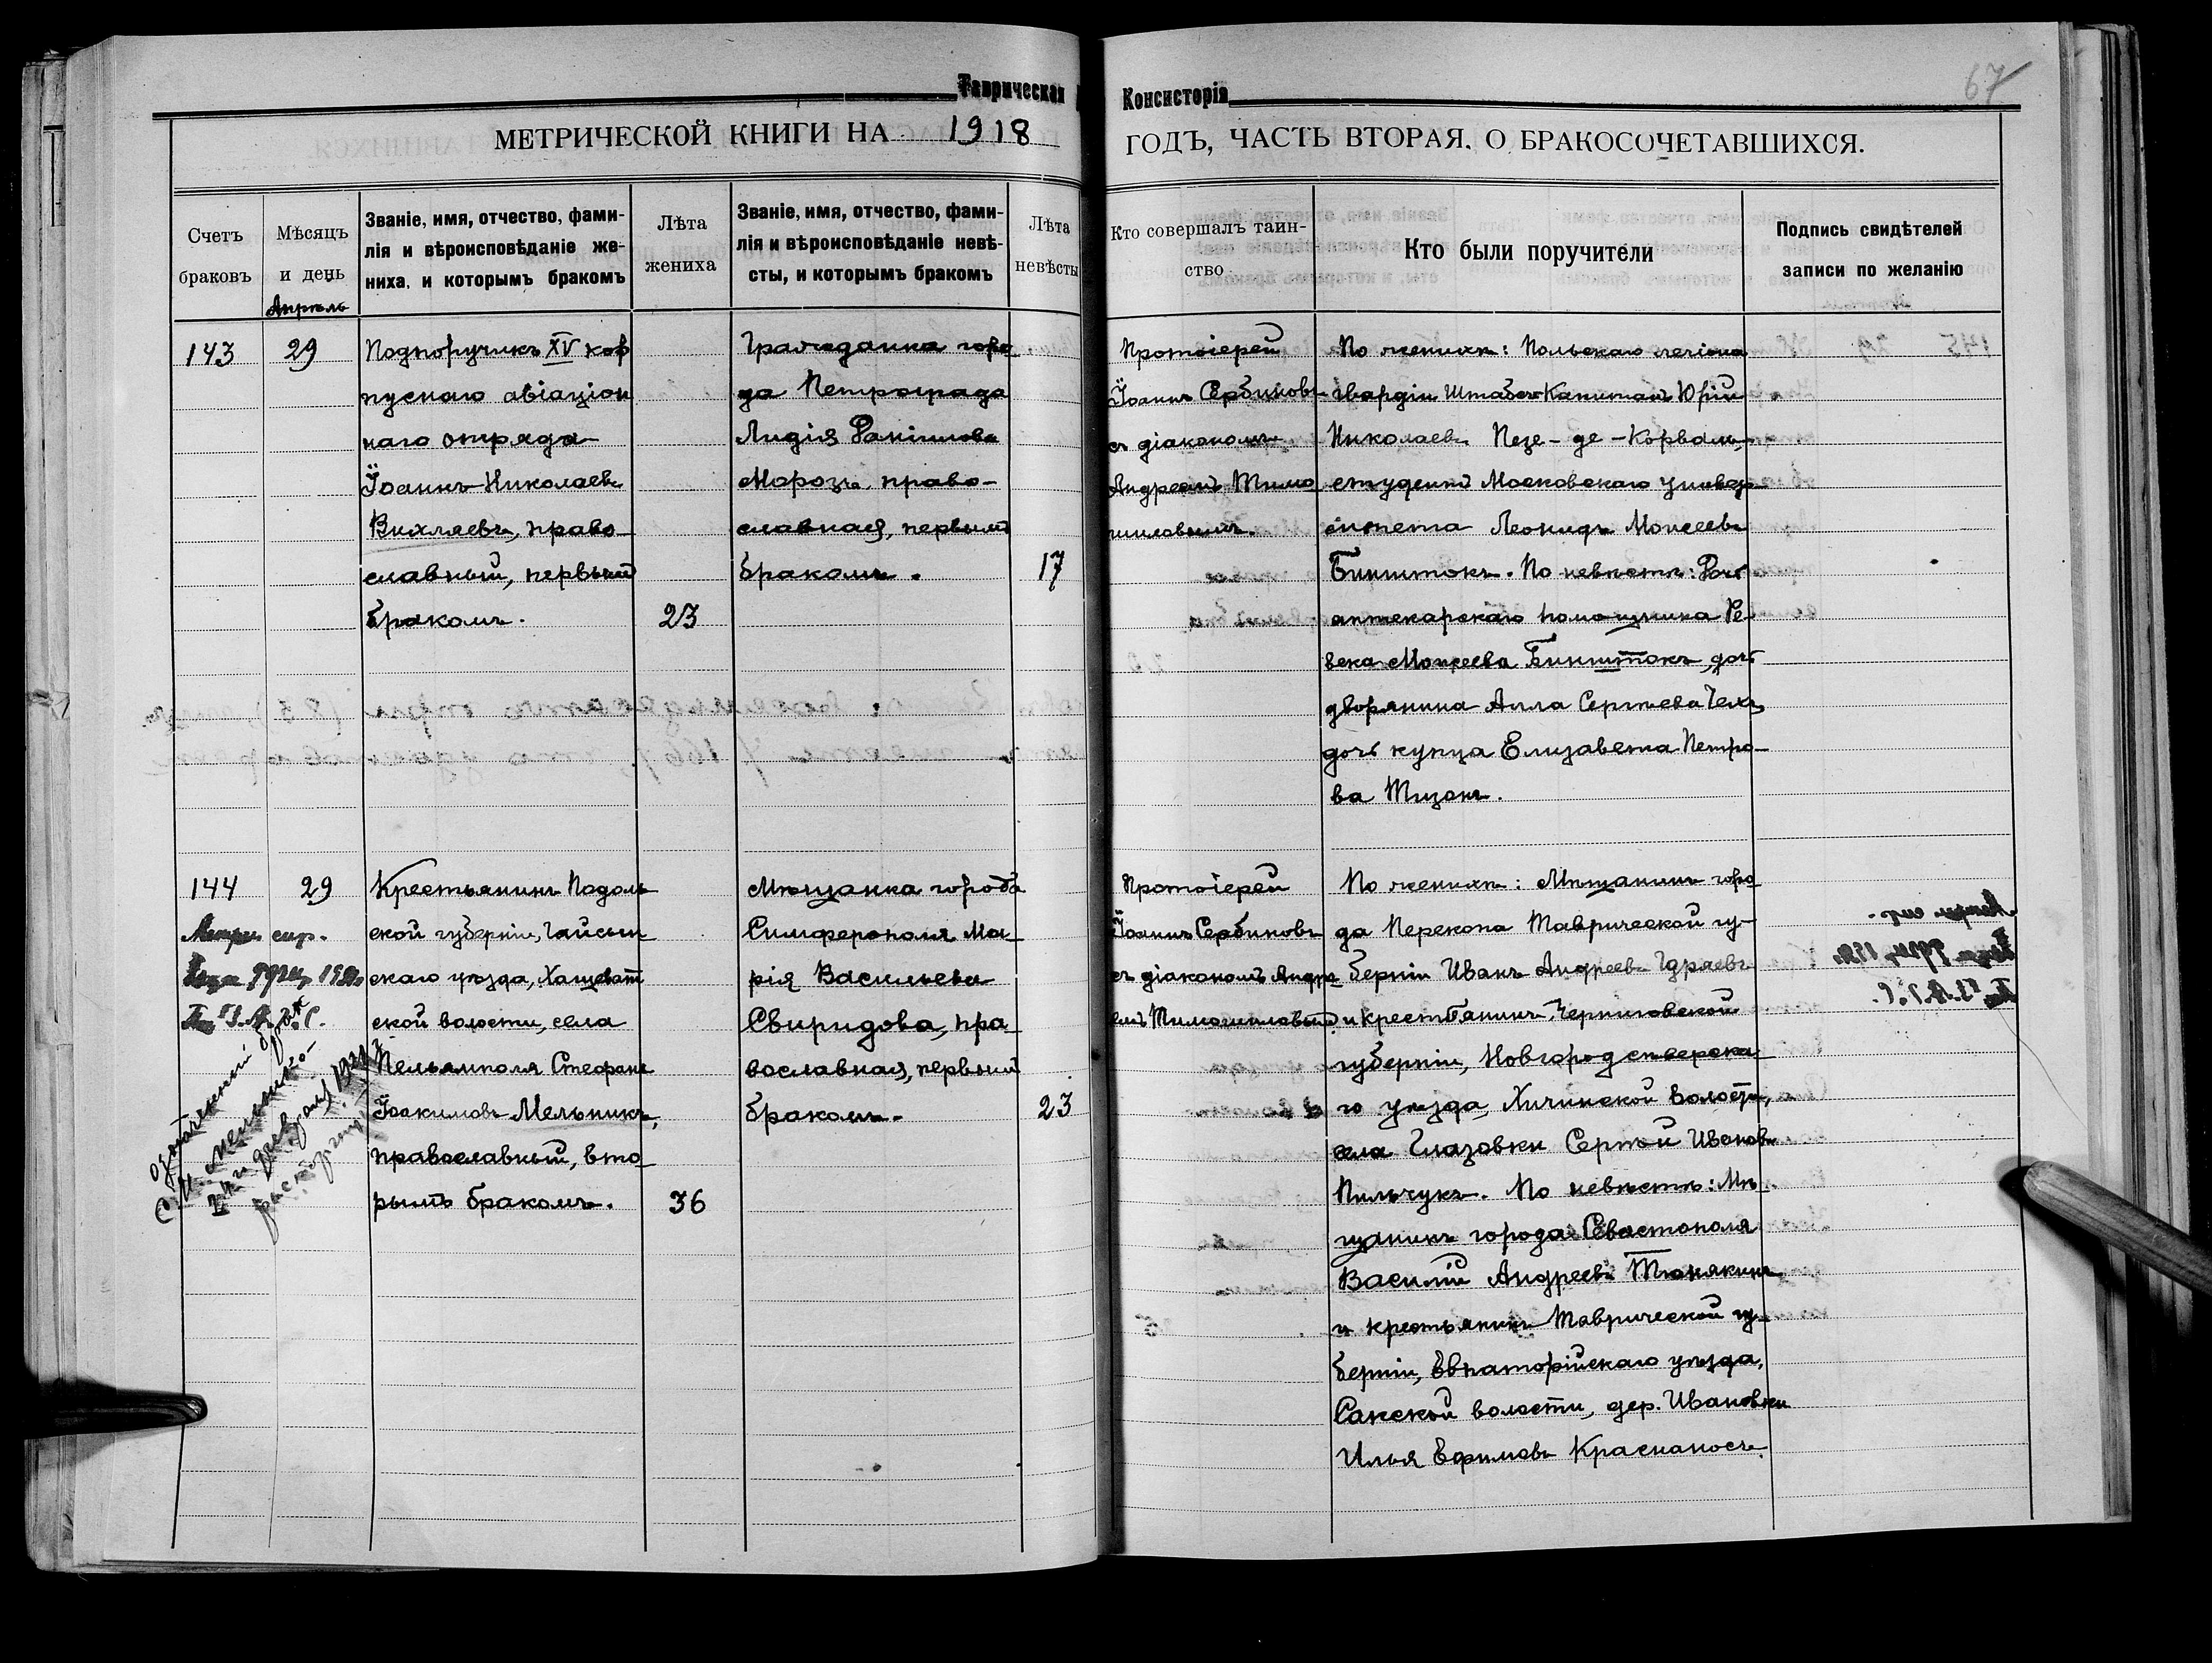 Таврическая Консисторія
67
МЕТРИЧЕСКОЙ КНИГИ НА 1918 ГОДЪ, ЧАСТЬ ВТОРАЯ, О БРАКОСОЧЕТАВШИХСЯ.
Счетъ
браковъ
Мѣсяцъ
и день
Апрѣль
Званіе, имя, отчество, фами-
лія и вѣроисповѣданіе же-
ниха, и которымъ бракомъ
Лѣта
жениха
Званіе, имя, отчество, фами-
лія и вѣроисповѣданіе невѣ-
сты, и которымъ бракомъ
Лѣта
невѣсты
Кто совершалъ таин-
ство
Кто были поручители
Подпись свидѣтелей
записи по желанію
143
29
Подпоручикъ XV кор
пуснаго авіаціон
наго отряда
Іоаннъ Николаевъ
Вихляевъ, право-
славный, первымъ
бракомъ.
23
Гражданка горо
да Петрограда
Лидія
Морозъ, право-
славная, первымъ
бракомъ.
17
Протоіерей
Іоаннъ Сербиновъ
съ діакономъ
Андреемъ Тимо

По женихѣ: Польскаго легіона
гвардіи Штабсъ-Капитанъ Юрій
Николаевъ Пезе-де-Корваль,
студентъ Московскаго универ-
ситета Леонидъ Моисеевъ
Бинштокъ. По невѣстѣ: Дочь
аптекарскаго помощника Ре
века Моисеева Бинштокъ, дочь
дворянина Алла Сергѣева Чехъ,
дочь купца Елизавета Петро-
ва
144
29
Крестьянинъ Подоль
ской губерніи, Гайсин
скаго уѣзда, Хащеват
ской волости, села
Стефанъ
Іоакимовъ Мельникъ,
православный, вто
рымъ бракомъ.
36
Мѣщанка города
Симферополя Ма-
рія Васильева
Свиридова, пра-
вославная, первымъ
бракомъ.
23
Протоіерей
Іоаннъ Сербиновъ
съ діакономъ Андре

По женихѣ: Мѣщанинъ горо
да Перекопа Таврической гу-
берніи Иванъ Андреевъ
и крестьянинъ Черниговской
губерніи, Новгородсѣверска
го уѣзда, волости,
села Глазовки Сергѣй Ивановъ
Пильчукъ. По невѣстѣ: Мѣ-
щанинъ города Севастополя
Василій Андреевъ Тюнякинъ
и крестьянинъ Таврической гу-
берніи, Евпаторійскаго уѣзда,
Сакской волости, дер. Ивановки
Илья Ефимовъ Красианосъ
означенный брак